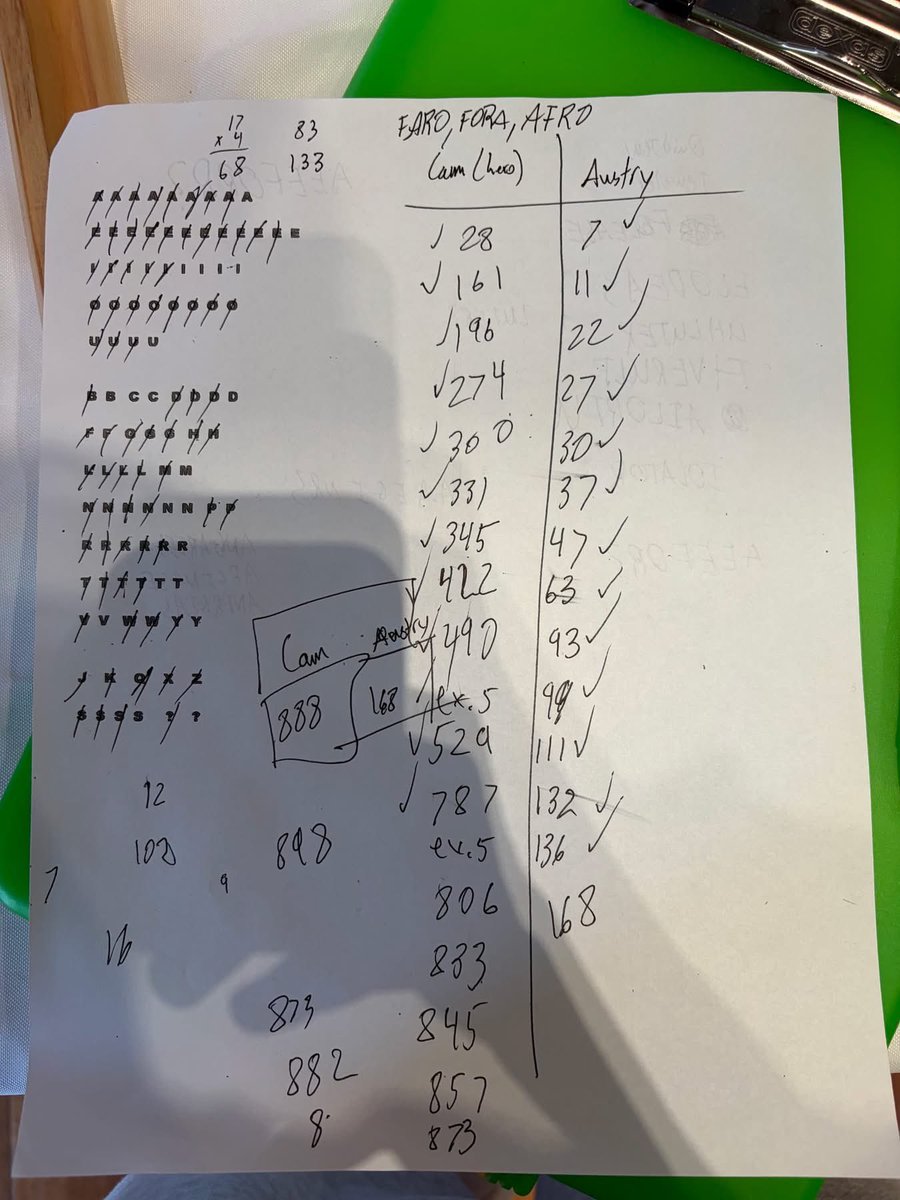 deydas
17
x 4
68
83
133
FARO, FORA, AFRO
Cam (hero) Austry
A A A A A A A A A
E E E E E E E E E E E E
I I I I I I I I I
O O O O O O O O
U U U U
B B C C D D D D
F F G G G H H
L L L L M M
N N N N N N P P
R R R R R R
T T T T T T
V V W W Y Y
J K Q X Z
S S S S ? ?
28 7
161 11
196 22
274 27
300 30
331 37
345 47
422 63
490 93
ex. 5 99
529 111
787 132
ex. 5 136
806 168
833
845
857
873
Cam Austry
888 168
92
898
9
7
16
873
882
8